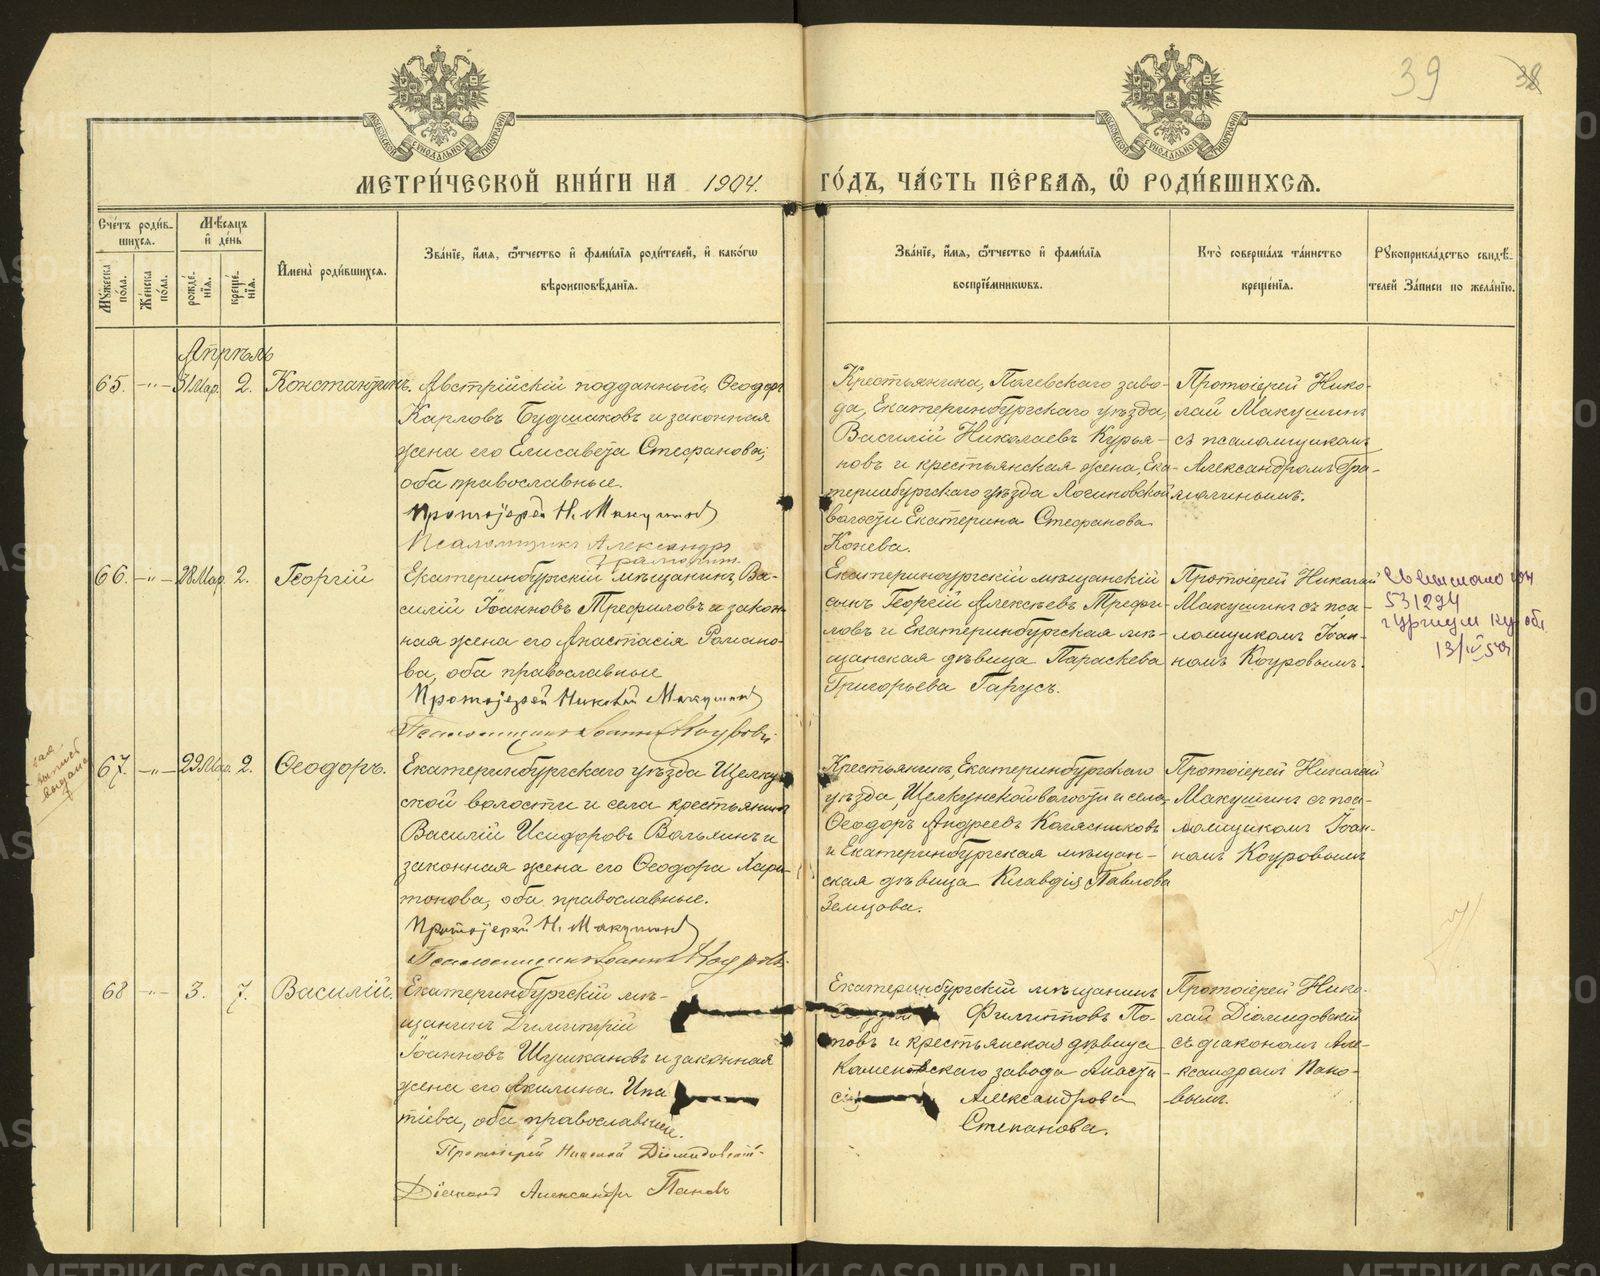 39
38
МЕТРИ́ЧЕСКОЙ КНИ́ГИ НА 1904. ГО́ДЪ, ЧА́СТЬ ПЕ́РВАЯ, Ѽ РОДИ́ВШИХСЯ.
Сче́тъ роди́в-
шихся.
Мѣ́сяцъ
и҆ де́нь
Мꙋ́жеска по́ла.
Же́нска по́ла.
рожде́-
нїя.
креще́-
нїя.
И҆мена̀ роди́вшихся.
Зва́нїе, и҆́мя, ѻ҆́тчество и҆ фами́лїя роди́телей, и҆ како́гѡ
вѣроисповѣ́данїя.
Зва́нїе, и҆́мя, ѻ҆́тчество и҆ фами́лїя
воспрїе́мникѡвъ.
Кто̀ соверша́лъ та́инство
креще́нїя.
Рꙋкоприкла́дство свидѣ́-
телей За́писи по жела́нїю.
Апрѣль
65. -"- 31 Мар. 2. Константинъ.
Австрійскій подданный, Ѳеодоръ
Карловъ Будшаковъ и законная
жена его Елисавета Стефанова;
оба православные.
Протоіерей Н. Макушинъ
Псаломщикъ Александръ
Крестьянина, Полевскаго заво-
да, Екатеринбургскаго уѣзда,
Василій Николаевъ Курья-
новъ и крестьянская жена, Ека-
теринбургскаго уѣзда Логиновской
волости Екатерина Стефанова
Конева.
Протоіерей Нико-
лай Макушинъ
съ псаломщикомъ
Александромъ
66. -"- 28 Мар. 2. Георгій
Екатеринбургскій мѣщанинъ, Ва-
силій Іоанновъ Трефиловъ и закон-
ная жена его Анастасія Романо-
ва, оба православные
Протоіерей Николай Макушинъ
Псаломщикъ Іоаннъ Коуровъ
Екатеринбургскій мѣщанскій
сынъ Георгій Алексѣевъ Трефи-
ловъ и Екатеринбургская мѣ-
щанская дѣвица Параскева
Григорьева Гарусъ.
Протоіерей Николай
Макушинъ съ пса-
ломщикомъ Іоан-
номъ Коуровымъ.
531294
67. -"- 29 Мар. 2. Ѳеодоръ.
Екатеринбургскаго уѣзда Щелкун-
ской волости и села крестьянинъ
Василій Исидоровъ Вольхинъ и
законная жена его Ѳеодора Хари-
тонова, оба православные.
Протоіерей Н. Макушинъ
Псаломщикъ Іоаннъ Коуровъ
Крестьянинъ, Екатеринбургскаго
уѣзда, Щелкунской волости и села,
Ѳеодоръ Андреевъ Колясниковъ
и Екатеринбургская мѣщан-
ская дѣвица Клавдія Павлова
Земцова.
Протоіерей Николай
Макушинъ съ пса-
ломщикомъ Іоан-
номъ Коуровымъ
68 -"- 3. 7. Василій.
Екатеринбургскій мѣ-
щанинъ Димитрій
Іоанновъ Шушкановъ и законная
жена его Акилина Ипа
тіева, оба православные.
Протоіерей Николай Діомидовскій
Діаконъ Александръ Пановъ
Екатеринбургскій мѣщанинъ
Филипповъ По-
повъ и крестьянская дѣвица
Каменскаго завода Анаста-
сія Александрова
Степанова.
Протоіерей Нико-
лай Діомидовскій
съ діакономъ Але-
ксандромъ Пано-
вымъ.